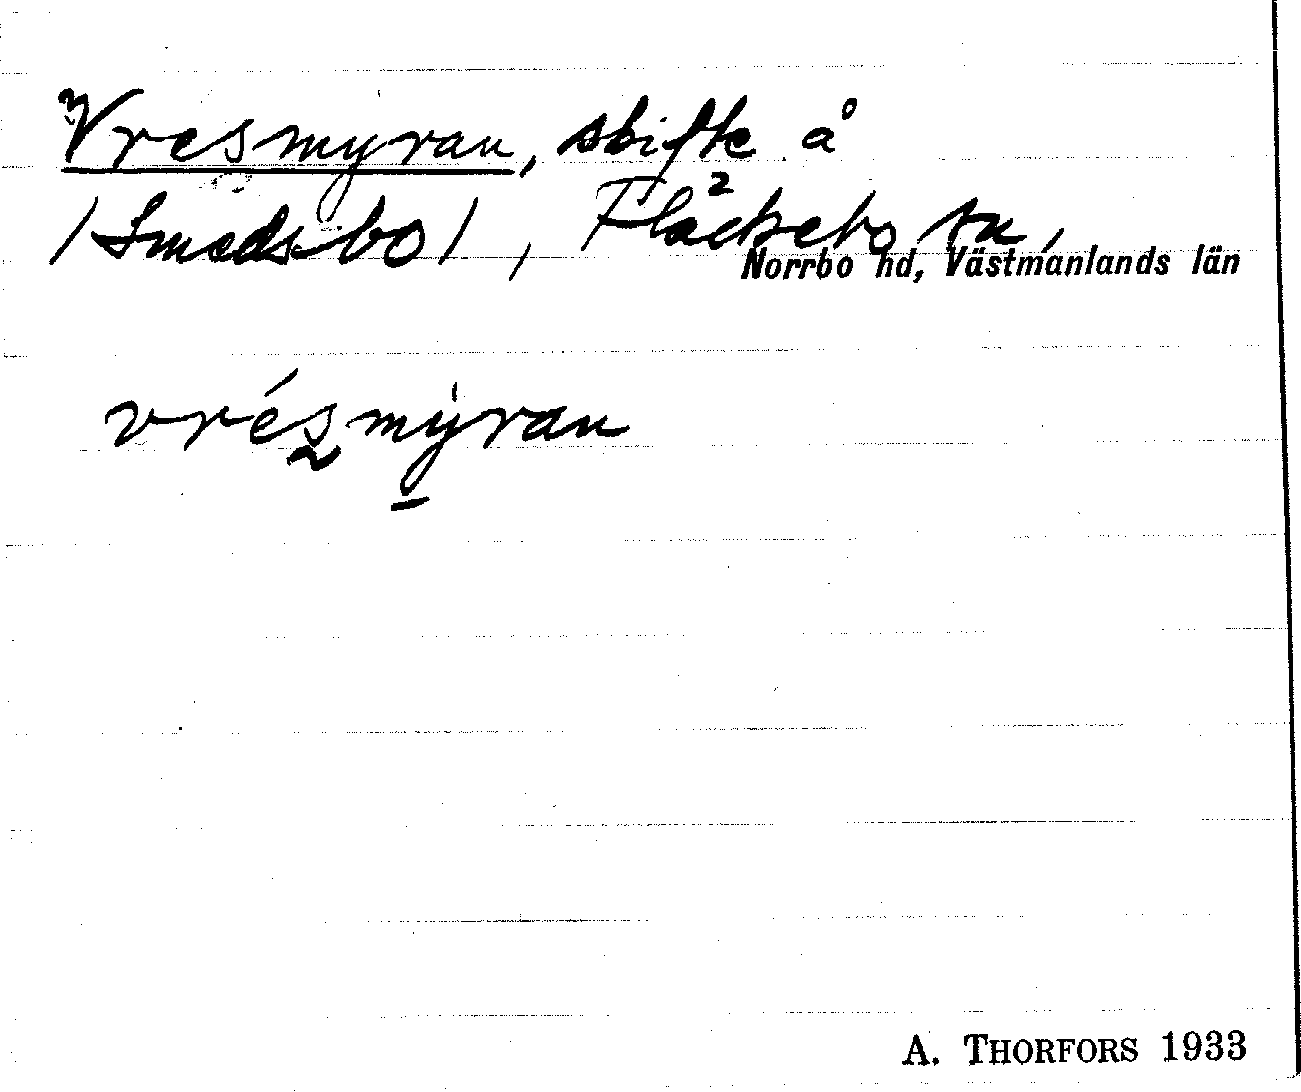 Vresmyran, skifte å
/Smedsbo/, Fläckebo sn,
Norrbo hd, Västmanlands län
vrésmyran
A. THORFORS 1933